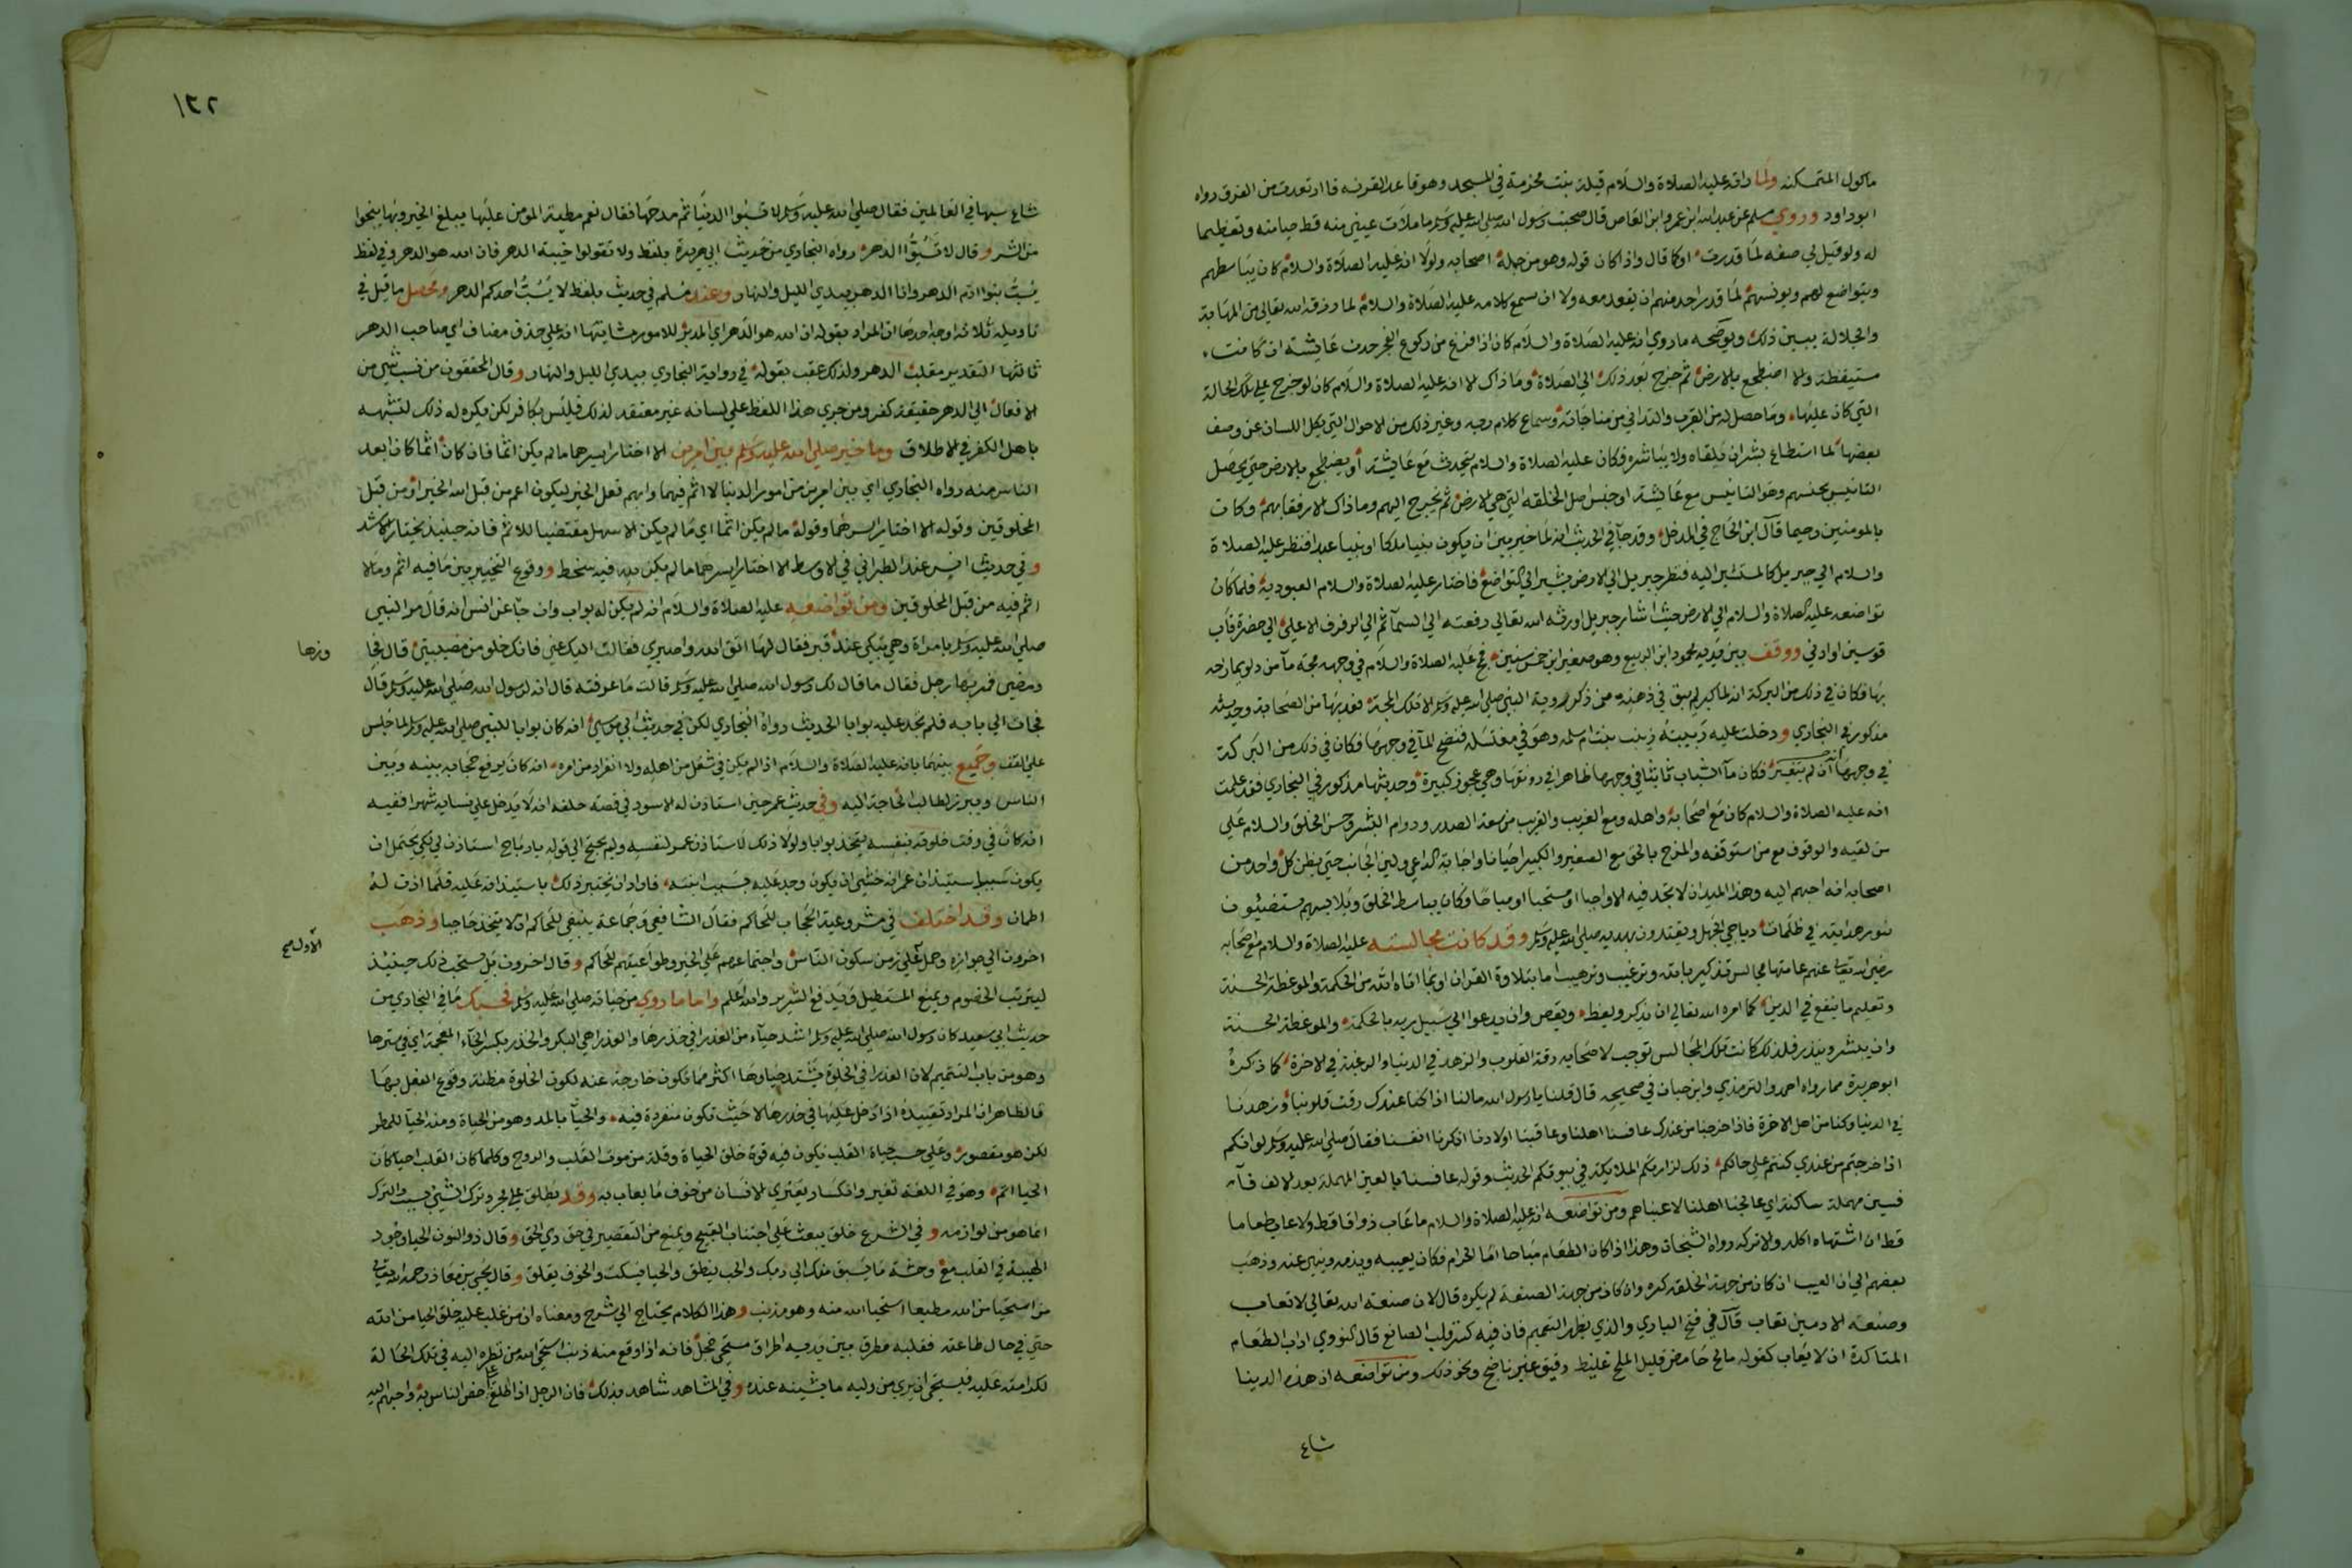 ماكول المتمسكنه ولما راته عليه الصلاة والسلام قيلة بنت مخرمة في المسجد وهو قاعد القرفصا ارتعدت من الفرق رواه
ابوداود وروي مسلم عن عبد الله ابن عمرو ابن العاص قال صحبت رسول الله صلى الله عليه وسلم ما ملأت عيني منه قط حيا منه وتعظيما
له ولو قيل لي صفه لما قدرت او كما قال واذا كان قوله وهو من جملة اصحابه ولولا انه عليه الصلاة والسلام كان يباسطهم
ويتواضع لهم ويونسهم لما قدر احد منهم ان يقعد معه ولا ان يسمع كلامه عليه الصلاة والسلام لما رزقه الله تعالى من المهابة
والجلالة يبين ذلك ويوضحه ما روي انه عليه الصلاة والسلام كان اذا فرغ من ركوع الفجر حدث عايشة ان كانت
مستيقظة والا اضطجع بالارض ثم خرج بعد ذلك الى الصلاة وما ذاك الا انه عليه الصلاة والسلام كان لو خرج على تلك الحالة
التي كان عليها وما حصل له من القرب والتداني من مناجاته وسماع كلام ربه وغير ذلك من الاحوال التي يكل اللسان عن وصف
بعضها لما استطاع بشر ان يلقاه ولا يباشره فكان عليه الصلاة والسلام يتحدث مع عايشة أو يضطجع بالارض حتى يحصل
التانيس بجنسهم وهو التانيس مع عايشة او جنس اصل الخلقه التي هي الارض ثم يخرج اليهم وما ذاك الا رفقا بهم وكان
بالمومنين رحيما قال ابن الحاج في المدخل وقد جا في الحديث انه لما خير بين ان يكون نبيا ملكا او نبيا عبدا فنظر عليه الصلاة
والسلام الى جبريل كالمستشير اليه فنظر جبريل الى الارض يشير الى التواضع فاختار عليه الصلاة والسلام العبودية فلما كان
تواضعه عليه الصلاة والسلام الى الارض حيث اشار جبريل اورثه الله تعالى رفعته الى السمآ ثم الى الرفرف الاعلى الى حضرة قاب
قوسين او ادنى ووقف بين يديه محمود ابن الربيع وهو صغير ابن خمس سنين فمج عليه الصلاة والسلام في وجهه مجة مآ من دلو يمازحه
بها فكان في ذلك من البركة انه لما كبر لم يبق في ذهنه من ذكر روية النبي صلى الله عليه وسلم الا تلك المجة فعد بها من الصحابة وحديثه
مذكور في البخاري ودخلت عليه ربيبته زينب بنت ام سلمه وهو في مغتسله فنضح المآ في وجهها فكان في ذلك من البركة
في وجهها أن لم يتغير فكان مآ الشباب ثابتا في وجهها ظاهرا في رونقها وهي عجوز كبيرة وحديثها مذكور في البخاري فقد علمت
انه عليه الصلاة والسلام كان مع اصحابه واهله ومع الغريب والقريب من سعة الصدر ودوام البشر وحسن الخلق والسلام على
من لقيه والوقوف مع من استوقفه والمزح بالحق مع الصغير والكبير احيانا واجابة الداعي ولين الجانب حتى يظن كل واحد من
اصحابه انه احبهم اليه وهذا الميدان لا تجد فيه الا واجبا او مستحبا او مباحا وكان يباسط الخلق ويلابسهم يستضيئون
بنور هدايته في ظلمات دياجي الجهل ويقتدون بهديه صلى الله عليه وسلم وقد كانت مجالسته عليه الصلاة والسلام مع اصحابه
رضي الله تعالى عنهم عامتها مجالس تذكير بالله وترغيب وترهيب اما بتلاوة القران او بما اتاه الله من الحكمة والموعظة الحسنة
وتعليم ما ينفع في الدين كما امره الله تعالى ان يذكر ويعظ ويقص وان يدعوا الى سبيل ربه بالحكمة والموعظة الحسنة
وان يبشر وينذر فلذلك كانت تلك المجالس توجب لاصحابه رقة القلوب والزهد في الدنيا والرغبة في الاخرة كما ذكره
ابو هريرة مما رواه احمد والترمذي وابن حبان في صحيحه قال قلنا يا رسول الله ما لنا اذا كنا عندك رقت قلوبنا وزهدنا
في الدنيا وكنا من اهل الاخرة فاذا خرجنا من عندك عافسنا اهلنا وعاقبنا اولادنا انكرنا انفسنا فقال صلى الله عليه وسلم لو انكم
اذا خرجتم من عندي كنتم على حالكم ذلك لزارتكم الملايكة في بيوتكم الحديث وقوله عافسنا بالعين المهملة بعد الالف فآ
فسين مهملة ساكنة اي عالجنا اهلنا لاعبناهم ومن تواضعه انه عليه الصلاة والسلام ما عاب ذواقا قط ولا عاب طعاما
قط ان اشتهاه اكله والا تركه رواه الشيخان وهذا اذا كان الطعام مباحا اما الحرام فكان يعيبه ويذمه وينهى عنه وذهب
بعضهم الى ان العيب ان كان من جهة الخلقه كره وان كان من جهة الصنعة لم يكره قال لان صنعة الله تعالى لا تعاب
وصنعه الادمين تعاب قال في فتح الباري والذي يظهر التعميم فان فيه كسر قلب الصانع قال النووي من اداب الطعام
المتاكدة ان لا يعاب كقوله مالح حامض قليل الملح غليظ رقيق غير ناضج ونحو ذلك ومن تواضعه ان هذه الدنيا
شاع
١٢٢
شاع سبها في العالمين فقال صلى الله عليه وسلم لا تسبوا الدنيا ثم مدحها فقال نعم مطية المومن عليها يبلغ الخير وبها ينجوا
من الشر وقال لا تسبوا الدهر رواه البخاري من حديث ابي هريرة بلفظ ولا تقولوا خيبة الدهر فان الله هو الدهر وفي لفظ
يسب بنوا ادم الدهر وانا الدهر بيدي الليل والنهار وعند مسلم في حديث بلفظ لا يسب احدكم الدهر ومحصل ما قيل في
تاويله ثلاثه اوجه احدها ان المراد بقوله ان الله هو الدهر اي المدبر للامور ثانيها انه على حذف مضاف اي صاحب الدهر
ثالثها التقدير مقلب الدهر ولذلك عقب بقوله في رواية البخاري بيدي الليل والنهار وقال المحققون من نسب شي من
الافعال الى الدهر حقيقة كفر ومن جري هذا اللفظ على لسانه غير معتقد لذلك فليس بكافر لكن يكره له ذلك لتشبهه
باهل الكفر في الاطلاق وما خير صلى الله عليه وسلم بين امرين الا اختار ايسرهما ما لم يكن اثما فان كان اثما كان ابعد
الناس منه رواه البخاري اي بين امرين من امور الدنيا لا اثم فيهما وابهم فعل الخير ليكون اعم من قبل الله الخير او من قبل
المخلوقين وقوله الا اختار ايسرهما وقوله ما لم يكن اثما اي ما لم يكن الاسهل مقتضيا للاثم فانه حينيذ يختار الاشد
وفي حديث انس عند الطبراني في الاوسط الا اختار ايسرهما ما لم يكن لله فيه سخط ووقوع التخيير بين ما فيه اثم وما لا
اثم فيه من قبل المخلوقين ومن تواضعه عليه الصلاة والسلام انه لم يكن له بواب وان جا عن انس انه قال مر النبي
صلى الله عليه وسلم بامراة وهي تبكي عند قبر فقال لها اتق الله واصبري فقالت اليك عني فانك خلو من مصيبتي قال فجا
وزها
ومضى فمر بها رجل فقال ما قال لك رسول الله صلى الله عليه وسلم قالت ما عرفته قال انه لرسول الله صلى الله عليه وسلم قال
فجات الى بابه فلم تجد عليه بوابا الحديث رواه البخاري لكن في حديث ابي موسى انه كان بوابا للنبي صلى الله عليه وسلم لما جلس
على القف وجميع بينهما بانه عليه الصلاة والسلام اذا لم يكن في شغل من اهله ولا انفراد من امره انه كان يرفع حجابه بينه وبين
الناس ويبرز لطالب الحاجة اليه وفي حديث عمر حين استاذن له الاسود في قصة حلفه انه لا يدخل على نسايه شهرا ففيه
انه كان في وقت خلوته بنفسه يتخذ بوابا ولولا ذلك لاستاذن عمر لنفسه ولم يحتج الى قوله يا رباح استاذن لي لكن يحتمل ان
يكون سبب استيذان عمر انه خشي ان يكون وجد عليه بسبب ابنته فاراد ان يختبر ذلك باستيذانه عليه فلما اذن له
اطمان وقد اختلف في مشروعية الحجاب للحاكم فقال الشافعي وجماعة ينبغي للحاكم ان لا يتخذ حاجبا وذهب
اخرون الى جوازه وحمل على زمن سكون الناس واجتماعهم على الخير وطواعيتهم للحاكم وقال اخرون بل يستحب ذلك حينيذ
الأول صح
ليترتب الخصوم ويمنع المستطيل ويدفع الشرير والله اعلم واما ما روي من حيائه صلى الله عليه وسلم فحسبك ما في البخاري من
حديث ابي سعيد كان رسول الله صلى الله عليه وسلم اشد حيآء من العذرا في خدرها والعذرا هي البكر والخدر بكسر الخآء المعجمة اي في سترها
وهو من باب التتميم لان العذرا في الخلوة يشتد حياوها اكثر مما تكون خارجة عنه لكون الخلوة مظنة وقوع الفعل بها
فالظاهر ان المراد تقييده اذا دخل عليها في خدرها لا حيث تكون منفردة فيه والحيآ بالمد وهو من الحياة ومنه الحيا للمطر
لكن هو مقصور وعلى حسب حياة القلب يكون فيه قوة خلق الحياة وقلة من موت القلب والروح وكلما كان القلب احيا كان
الحيا اتم وهو في اللغة تغير وانكسار يعتري الانسان من خوف ما يعاب به وقد يطلق على مجرد ترك الشي بسبب والترك
انما هو من لوازمه وفي الشرع خلق يبعث على اجتناب القبيح ويمنع من التقصير في حق ذي الحق وقال ذو النون الحيا وجود
الهيبة في القلب مع وحشة ما يسبق منك الى ربك والحب ينطق والحيا يسكت والخوف يقلق وقال يحيى بن معاذ رحمه الله تعالى
من استحيا من الله مطيعا استحيا الله منه وهو مذنب وهذا الكلام يحتاج الى شرح ومعناه ان من غلب عليه خلق الحيا من الله
حتى في حال طاعته فقلبه مطرق بين يديه اطراق مستحي خجل فانه اذا وقع منه ذنب استحيا الله من نظره اليه في تلك الحالة
لكرامته عليه فيستحي ان يري من وليه ما يشينه عنده وفي المشاهد شاهد بذلك فان الرجل اذا اطلع على اخص الناس به واحبهم اليه